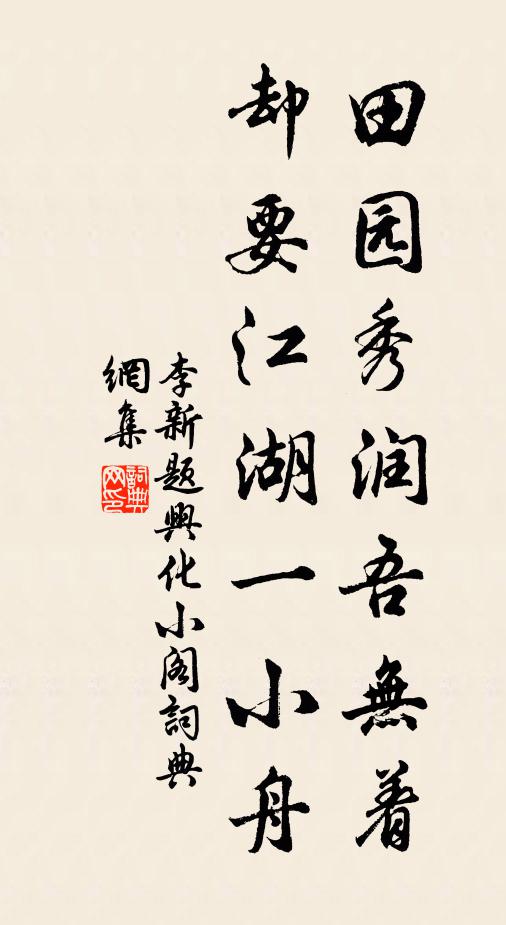 田园秀润吾無着
却要江湖一小舟
李新题興化小阁詞典
網集
詞典
网印